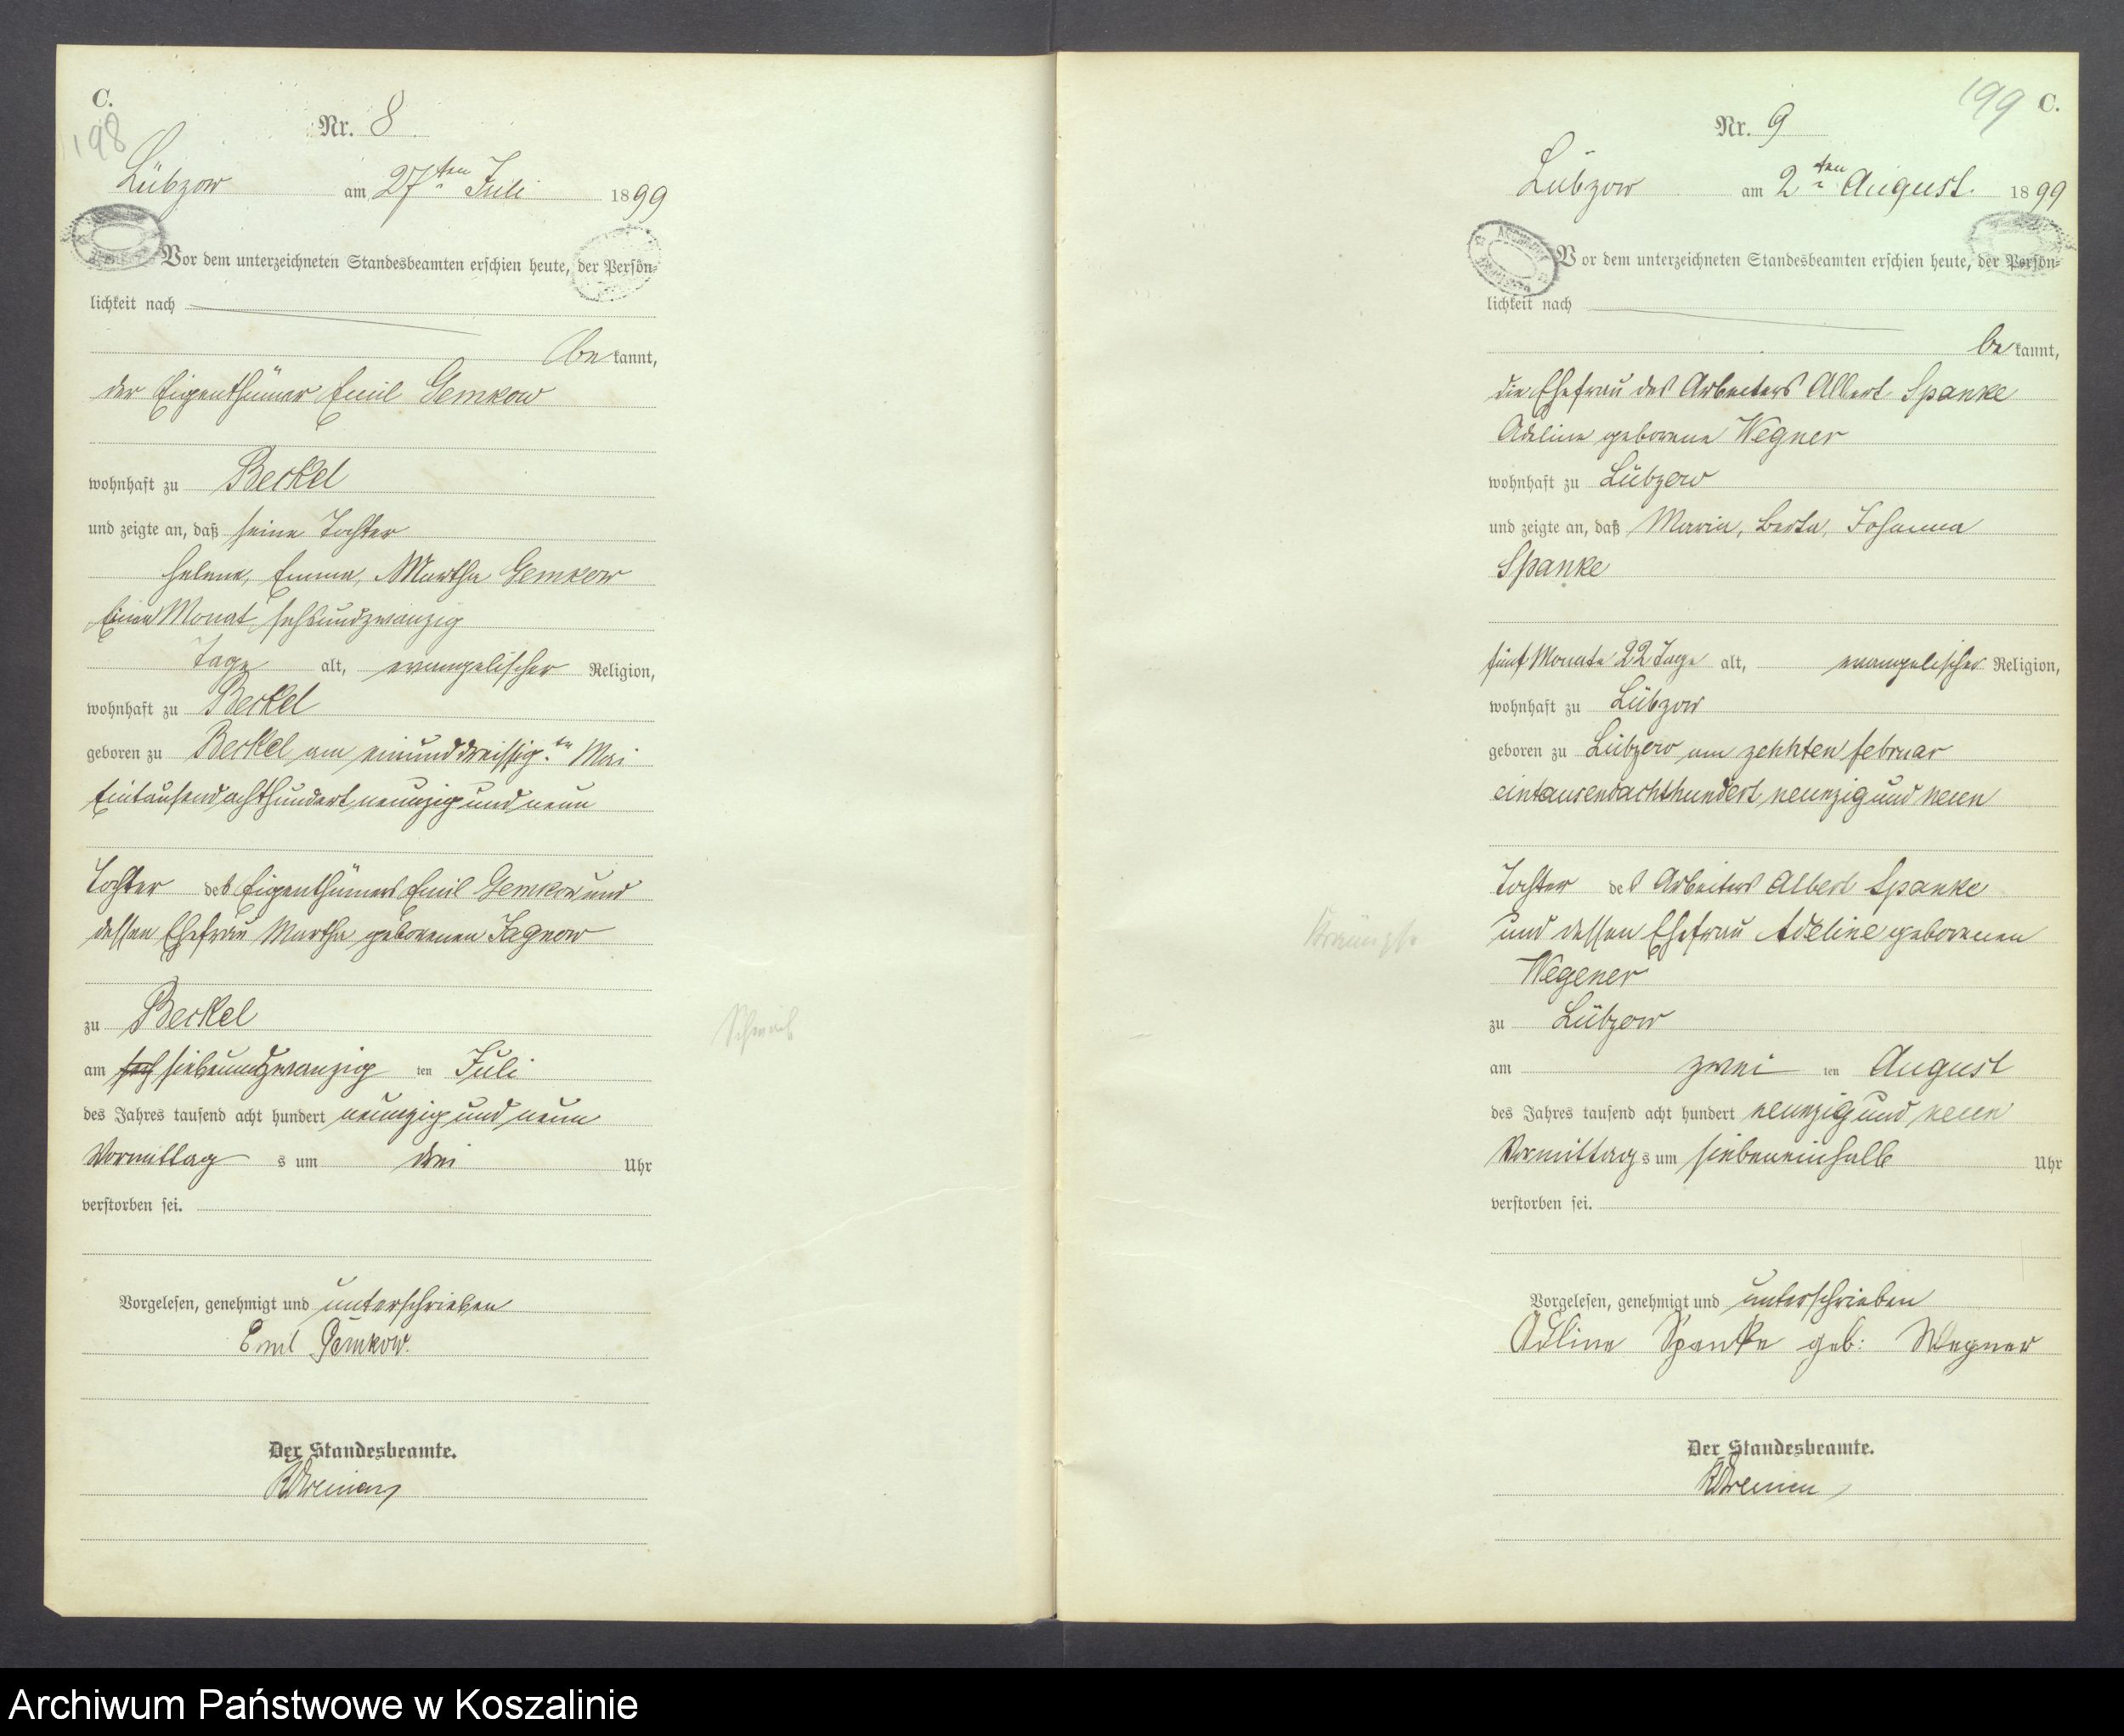 C.
198
Nr. 8
Lübzow am 27ten Juli 1899
Vor dem unterzeichneten Standesbeamten erschien heute, der Persön-
lichkeit nach
bekannt,
der Eigenthümer Emil Gemkow
wohnhaft zu Beckel
und zeigte an, daß seine Tochter
Helene, Emma, Martha Gemkow
Einen Monat, sechsundzwanzig
Tage alt, evangelischer Religion,
wohnhaft zu Beckel
geboren zu Beckel am einunddreissigten Mai
Eintausendachthundert neunzig und neun
Tochter des Eigenthümers Emil Gemkow und
dessen Ehefrau Martha geborenen Jagnow
zu Beckel
am siebenundzwanzig ten Juli
des Jahres tausend acht hundert neunzig und neun
Vormittag s um drei Uhr
verstorben sei.
Vorgelesen, genehmigt und unterschrieben
Emil Gemkow.
Der Standesbeamte.
199 C.
Nr. 9
Lübzow am 2ten August. 1899
Vor dem unterzeichneten Standesbeamten erschien heute, der Persön-
lichkeit nach
bekannt,
die Ehefrau des Arbeiters Albert Spanke
Adeline geborene Wegner
wohnhaft zu Lübzow
und zeigte an, daß Maria, Berta, Johanna
Spanke
fünf Monate 22 Tage alt, evangelischer Religion,
wohnhaft zu Lübzow
geboren zu Lübzow am zehnten Februar
eintausendachthundert neunzig und neun
Tochter des Arbeiters Albert Spanke
und dessen Ehefrau Adeline geborenen
Wegener
zu Lübzow
am zwei ten August
des Jahres tausend acht hundert neunzig und neun
Vormittag s um siebeneinhalb Uhr
verstorben sei.
Vorgelesen, genehmigt und unterschrieben
Adline Spanke geb: Wegner
Der Standesbeamte.
Archiwum Państwowe w Koszalinie